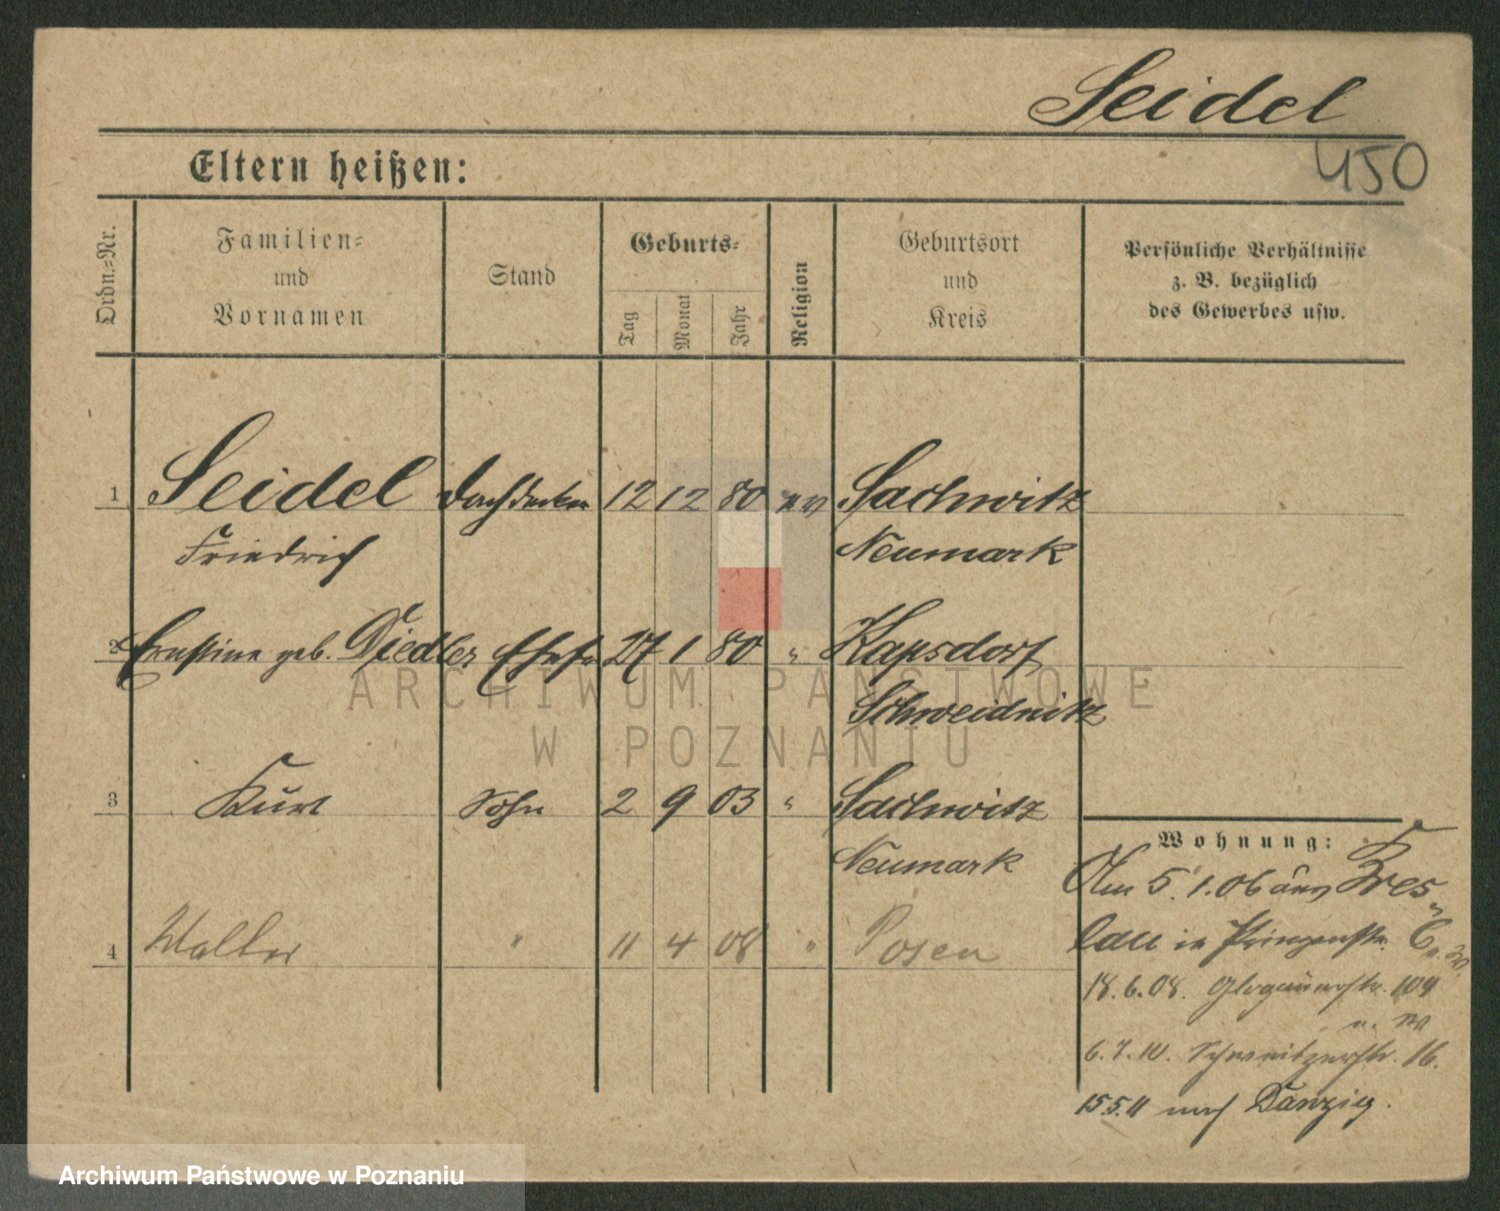 Seidel
450
Eltern heißen:
Ordn.-Nr.
Familien-
und
Vornamen
Stand
Geburts-
Tag
Monat
Jahr
Religion
Geburtsort
und
Kreis
Persönliche Verhältnisse
z. B. bezüglich
des Gewerbes usw.
1 Seidel Dachdecker 12 12 80 ev Sachwitz
Friedrich Neumark
2 Ernstine geb. Diedler Ehefr 27 1 80 " Kapsdorf
Schweidnitz
3 Kurt Sohn 2 9 03 " Sachwitz
Neumark
Wohnung:
Am 5.1.06 aus Bres-
lau in Prinzenstr. 6
4 Walter " 11 4 08 " Posen
18.6.08. Glogauerstr. 104
6.7.10. 16.
15 5.11 nach Danzig.
ARCHIWUM PAŃSTWOWE
W POZNANIU
Archiwum Państwowe w Poznaniu